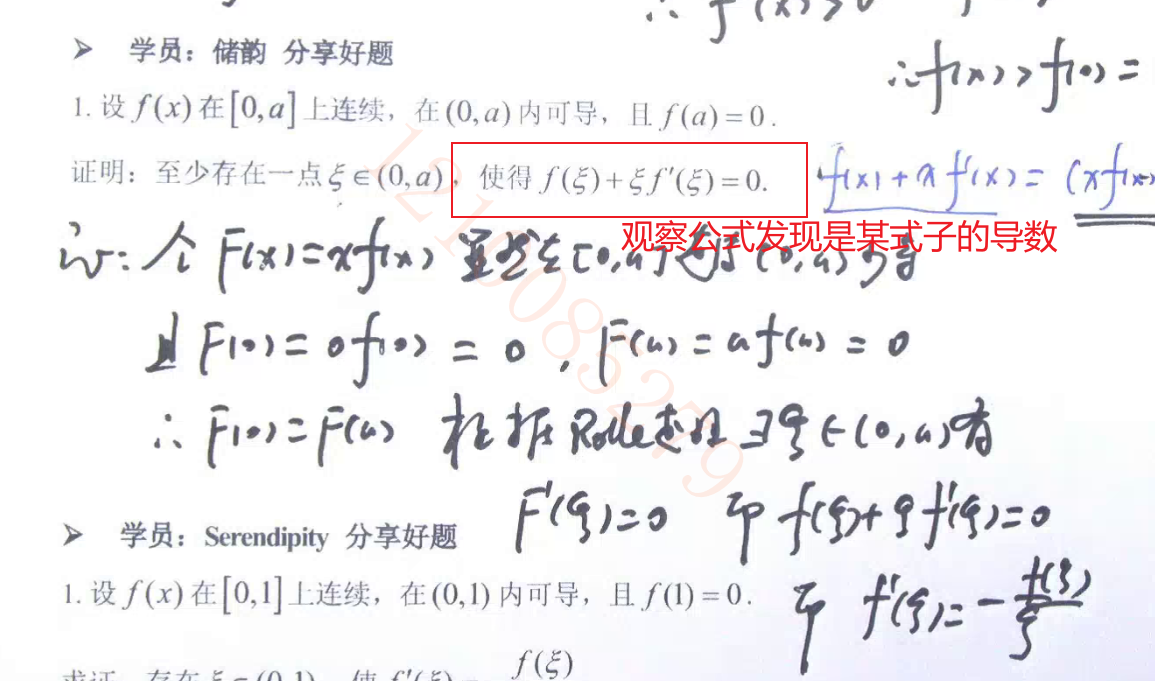 ∴ f(x)>0
➤ 学员：储韵 分享好题
∴f(x)>f(0)=
1. 设 f(x) 在 [0,a] 上连续，在 (0,a) 内可导，且 f(a)=0.
证明：至少存在一点 ξ∈(0,a)，使得 f(ξ)+ξf′(ξ)=0.
f(x)+xf′(x)=(xf(x)
观察公式发现是某式子的导数
证：令 F(x)=xf(x) 显然在[0,a]连续(0,a)可导
且F(0)=0f(0)=0，F(a)=af(a)=0
∴F(0)=F(a) 根据Rolle定理∃ξ∈(0,a)有
F′(ξ)=0 即 f(ξ)+ξf′(ξ)=0
➤ 学员：Serendipity 分享好题
即 f′(ξ)=-f(ξ)/ξ
1. 设 f(x) 在 [0,1] 上连续，在 (0,1) 内可导，且 f(1)=0.
求证：存在 ξ∈(0,1)，使 f′(ξ)= f(ξ)
1219085279